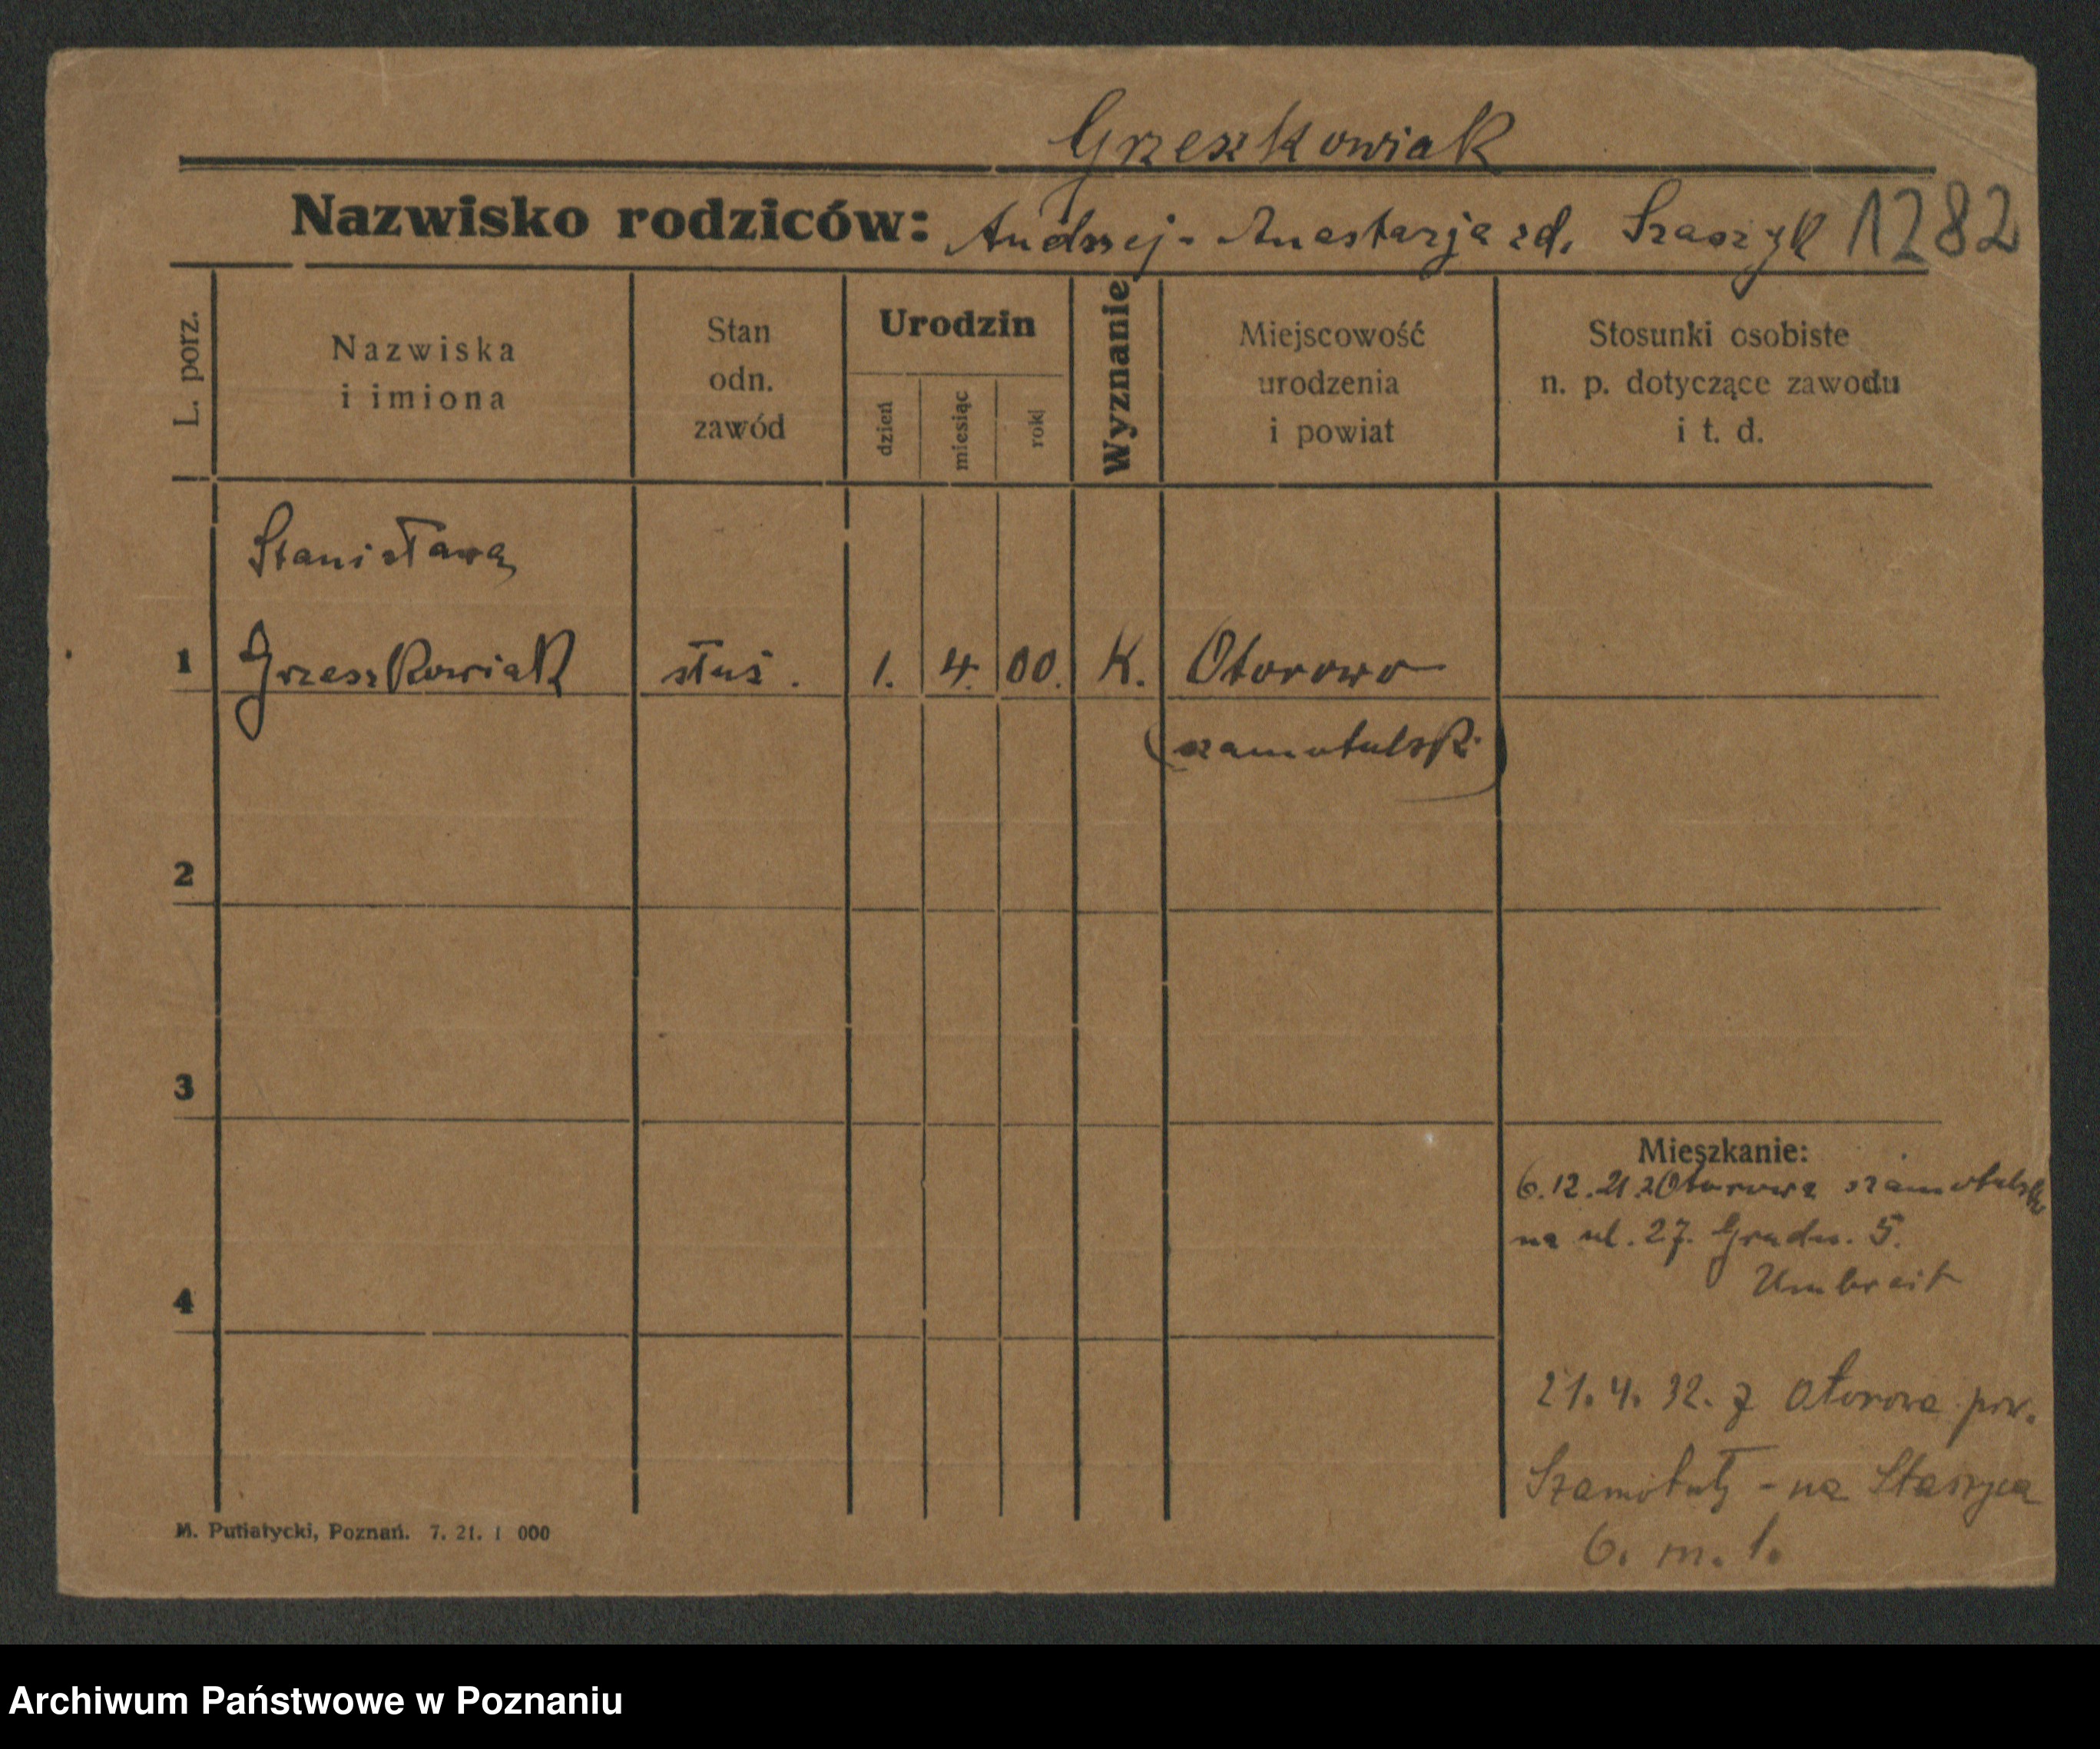 Grzeszkowiak
Nazwisko rodziców: Andrzej - Anastazja zd. Szaszyk 1282
L. porz.
Nazwiska
i imiona
Stan
odn.
zawód
Urodzin
dzień
miesiąc
rok
Wyznanie
Miejscowość
urodzenia
i powiat
Stosunki osobiste
n. p. dotyczące zawodu
i t. d.
Stanisława
1 Grzeszkowiak służ. 1. 4. 00. K. Otorowo
(szamotulsk.)
2
3
Mieszkanie:
6.12.21 z Otorowa szamotulsk.
na ul. 27. Grudn. 5.
Umbreit
4
21.4.32. z Otorowa pow.
Szamotuły - na Staszyca
6. m. 1.
M. Putiatycki, Poznań. 7. 21. 1 000
Archiwum Państwowe w Poznaniu